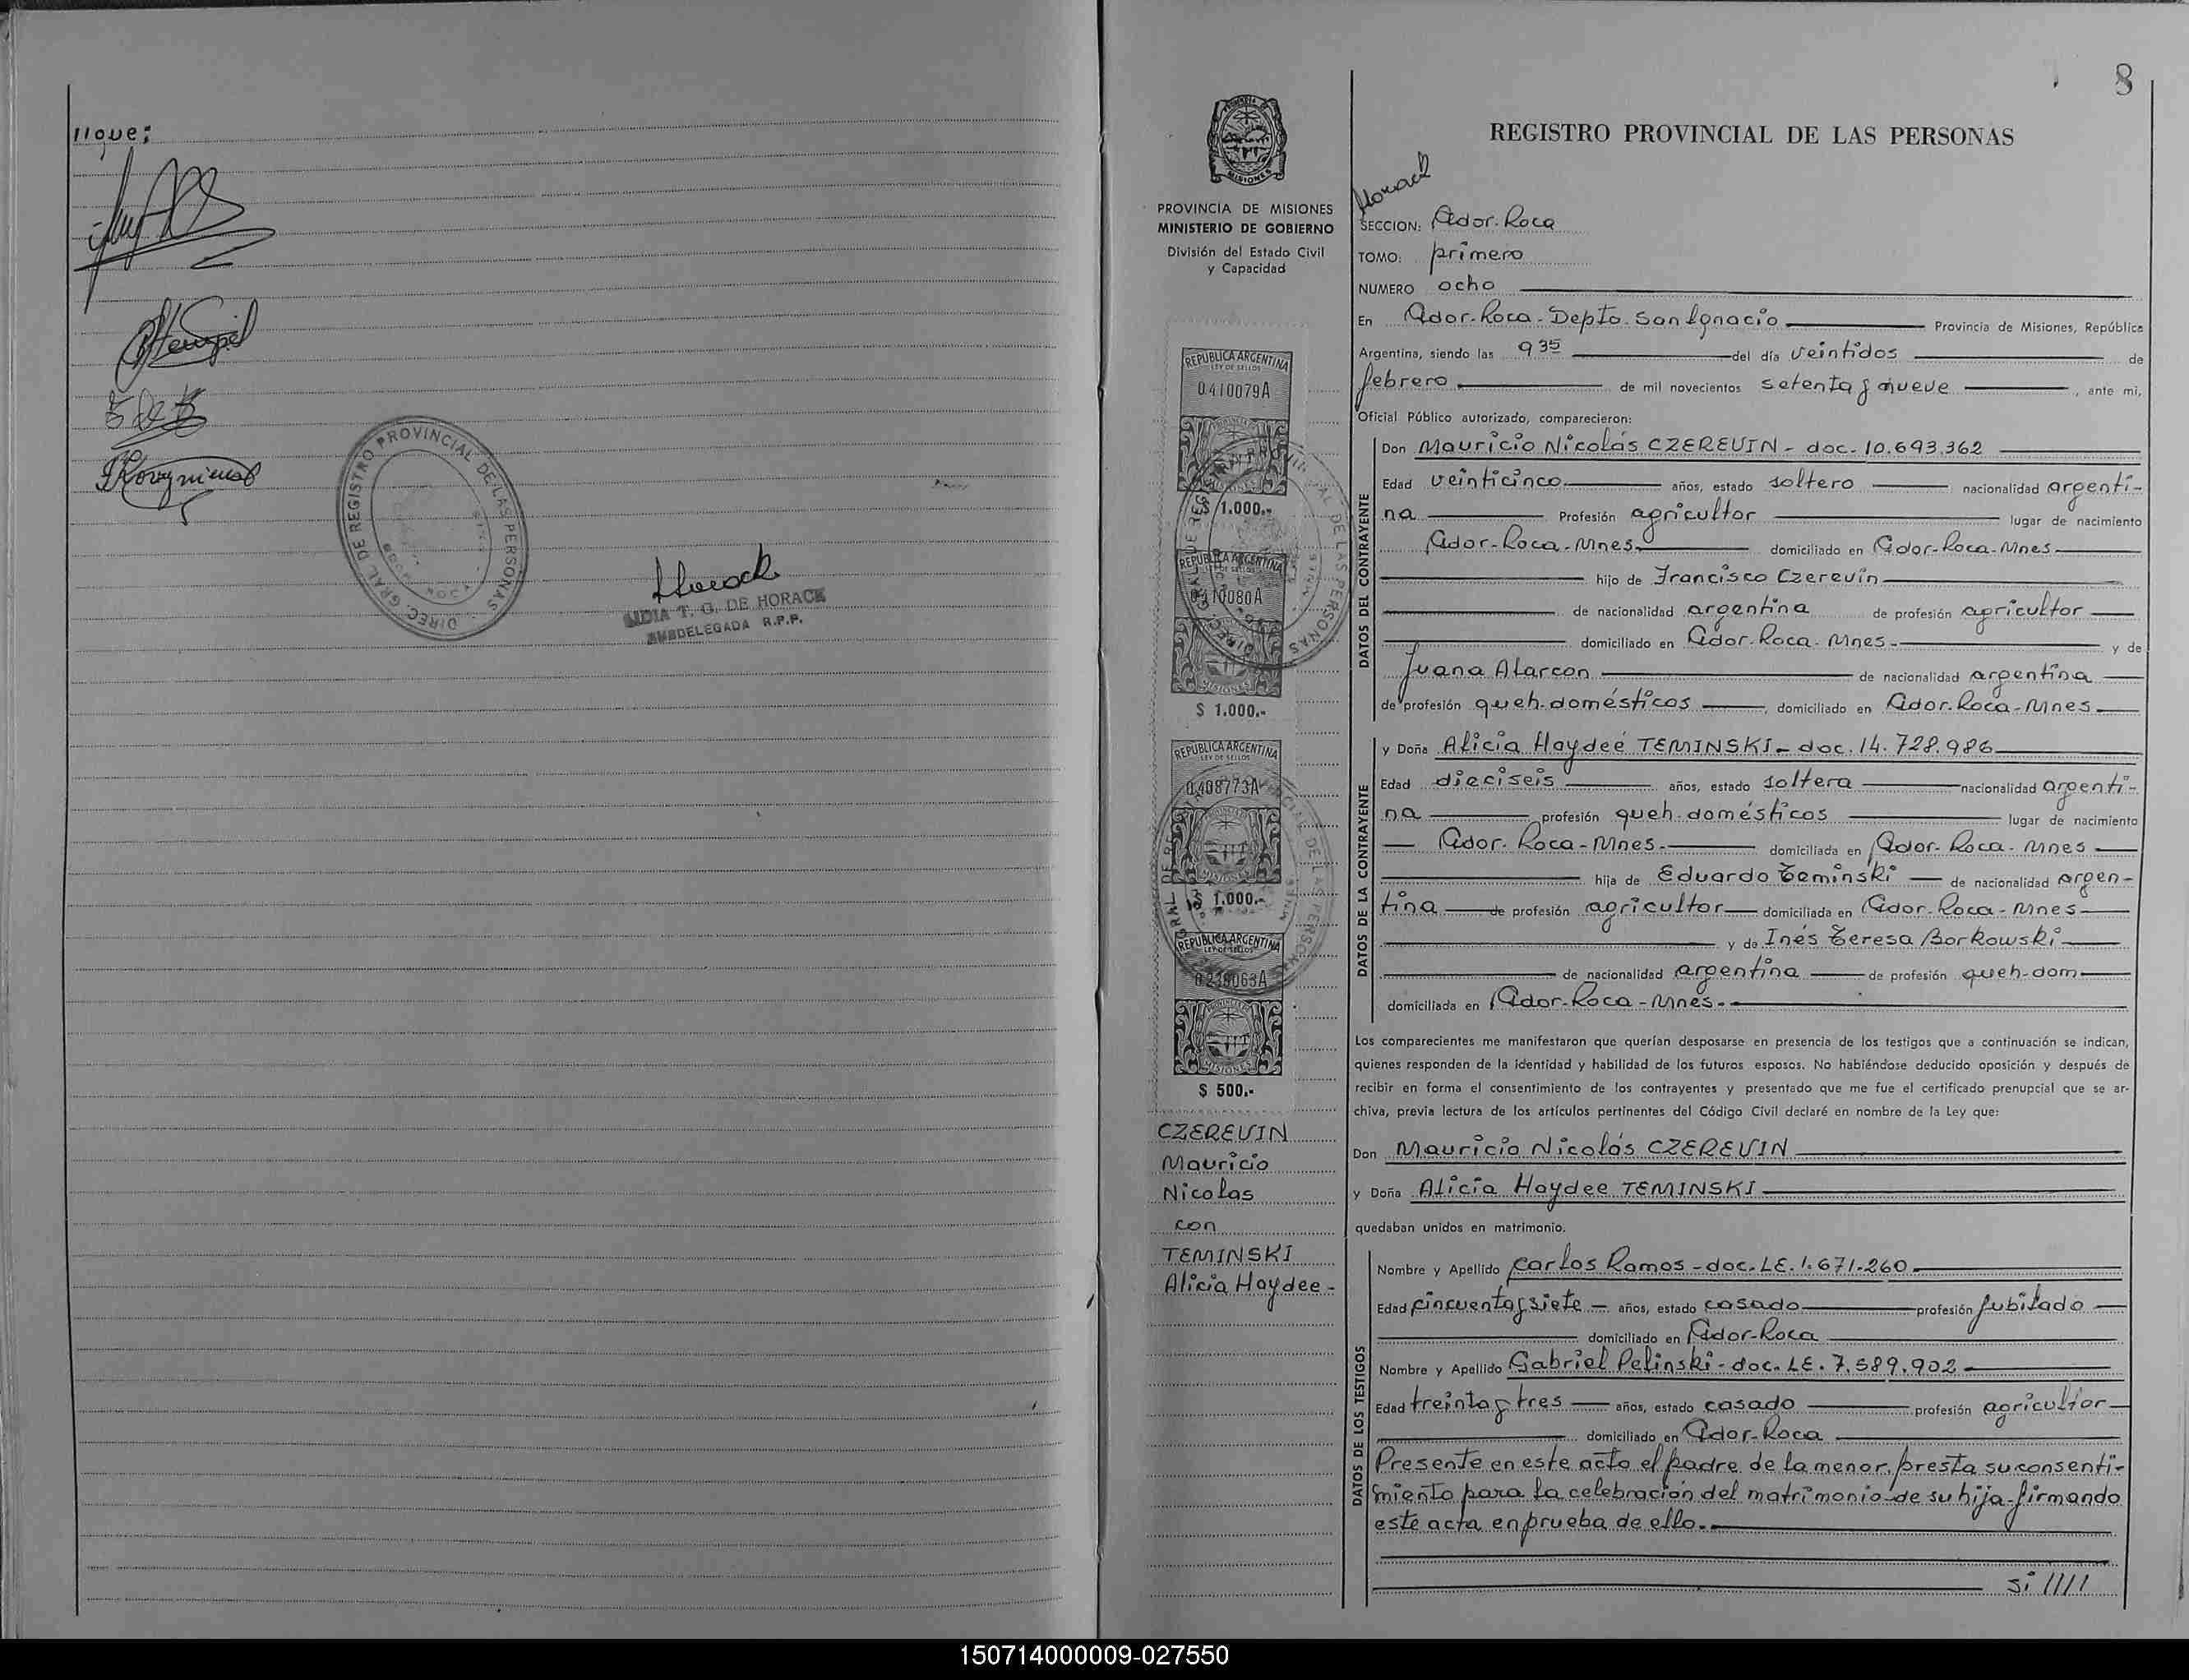 //gue:
DIREC. GRAL DE REGISTRO PROVINCIAL DE LAS PERSONAS
LIDIA T. G. DE HORACK
SUBDELEGADA R.P.P.
8
REGISTRO PROVINCIAL DE LAS PERSONAS
PROVINCIA DE MISIONES
MINISTERIO DE GOBIERNO
División del Estado Civil
y Capacidad
Horack
SECCION: Gdor. Roca
TOMO: primero
NUMERO ocho
En Gdor. Roca - Depto. San Ignacio Provincia de Misiones, República
Argentina, siendo las 9 35 del día veintidos de
febrero de mil novecientos setenta y nueve, ante mi,
Oficial Público autorizado, comparecieron:
DATOS DEL CONTRAYENTE
Don Mauricio Nicolás CZEREVIN - doc. 10.693.362
Edad veinticinco años, estado soltero nacionalidad argenti-
na Profesión agricultor lugar de nacimiento
Gdor-Roca-Mnes. domiciliado en Gdor-Roca-Mnes.
hijo de Francisco Czerevin
de nacionalidad argentina de profesión agricultor
domiciliado en Gdor. Roca. Mnes. y de
Juana Alarcon de nacionalidad argentina
de profesión queh. domésticos, domiciliado en Gdor. Roca-Mnes.
DATOS DE LA CONTRAYENTE
y Doña Alicia Haydeé TEMINSKI - doc. 14.728.986
Edad dieciseis años, estado soltera nacionalidad argenti-
na profesión queh. domésticos lugar de nacimiento
Gdor. Roca - Mnes. domiciliada en Gdor- Roca- Mnes
hija de Eduardo Teminski de nacionalidad argen-
tina de profesión agricultor domiciliada en Gdor. Roca - Mnes
y de Inés Teresa Borkowski
de nacionalidad argentina de profesión queh-dom
domiciliada en Gdor-Roca-Mnes.
Los comparecientes me manifestaron que querían desposarse en presencia de los testigos que a continuación se indican,
quienes responden de la identidad y habilidad de los futuros esposos. No habiéndose deducido oposición y después de
recibir en forma el consentimiento de los contrayentes y presentado que me fue el certificado prenupcial que se ar-
chiva, previa lectura de los artículos pertinentes del Código Civil declaré en nombre de la Ley que:
Don Mauricio Nicolás CZEREVIN
y Doña Alicia Haydee TEMINSKI
quedaban unidos en matrimonio.
DATOS DE LOS TESTIGOS
Nombre y Apellido Carlos Ramos - doc. LE. 1.671.260
Edad cincuenta y siete años, estado casado profesión jubilado
domiciliado en Gdor-Roca
Nombre y Apellido Gabriel Pelinski - doc. LE. 7.589.902
Edad treinta y tres años, estado casado profesión agricultor
domiciliado en Gdor-Roca
Presente en este acto el padre de la menor, presta su consenti-
miento para la celebración del matrimonio de su hija firmando
este acta en prueba de ello.
si ////
REPUBLICA ARGENTINA
LEY DE SELLOS
0410079A
$ 1.000.-
REPUBLICA ARGENTINA
0410080A
MISIONES
$ 1.000.-
REPUBLICA ARGENTINA
LEY DE SELLOS
0408773A
$ 1.000.-
REPUBLICA ARGENTINA
LEY DE SELLOS
MISIONES
$ 500.-
CZEREVIN
Mauricio
Nicolas
con
TEMINSKI
Alicia Haydee -
150714000009-027550